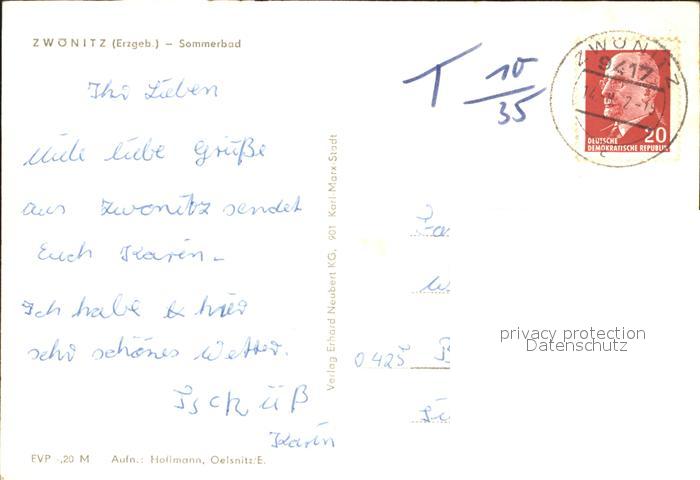 ZWÖNITZ (Erzgeb.) – Sommerbad
Ihr Lieben
Viele liebe Grüße
aus Zwönitz sendet
Euch Karin –
Ich habe hier
sehr schönes Wetter.
Tschüß
Karin
EVP -,20 M Aufn.: Hoffmann, Oelsnitz/E.
Verlag Erhard Neubert KG, 901 Karl-Marx-Stadt
T 10/35
ZWÖNITZ
9417
c
20
DEUTSCHE
DEMOKRATISCHE REPUBLIK
0425
privacy protection
Datenschutz